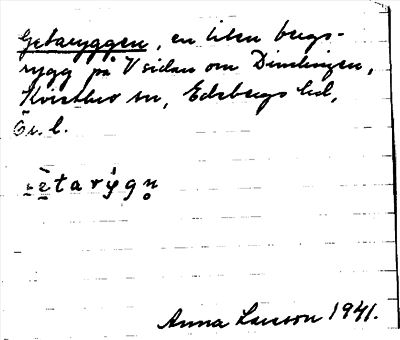 Getaryggen, en liten bergs-
rygg på V sidan om Dimlingen,
Kvistbro sn, Edsbergs hd,
Ö. l.
Anna Larsson 1941.